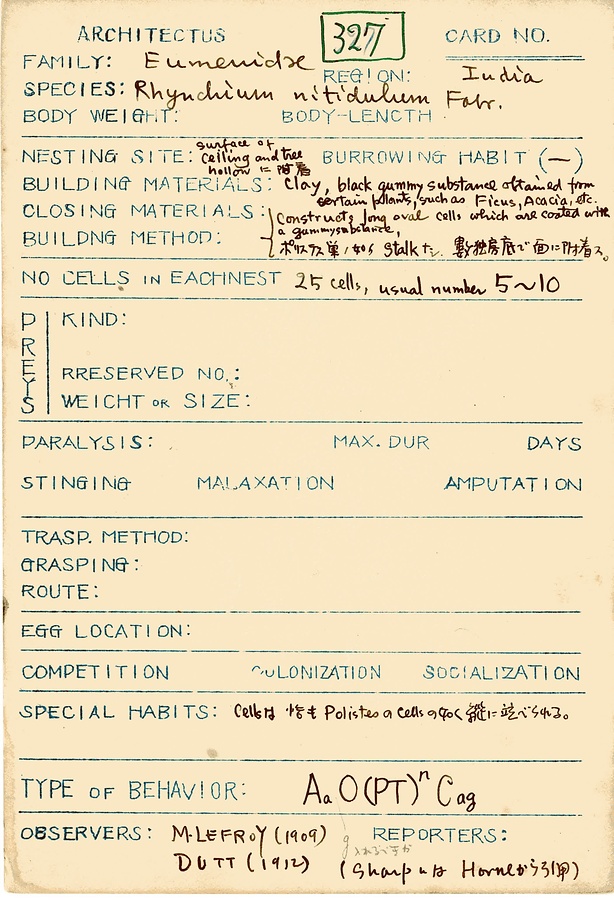 ARCHITECTUS 327 CARD NO.
FAMILY: Eumenidae REGION: India
SPECIES: Rhynchium nitidulum Fabr.
BODY WEIGHT: BODY-LENGTH
NESTING SITE: surface of ceiling and tree hollow に附着 BURROWING HABIT (—)
BUILDING MATERIALS: Clay, black gummy substance obtained from
certain plants, such as Ficus, Acacia, etc.
CLOSING MATERIALS:
BUILDNG METHOD:
Constructs long oval cells which are coated with
a gummy substance,
ポリステス巣ノ如ク stalk ナシ. 數独房底で面に附着ス。
NO CELLS IN EACHNEST 25 cells, usual number 5~10
PREYS
KIND:
RRESERVED NO.:
WEICHT OR SIZE:
PARALYSIS: MAX. DUR DAYS
STINGING MALAXATION AMPUTATION
TRASP. METHOD:
GRASPING:
ROUTE:
EGG LOCATION:
COMPETITION COLONIZATION SOCIALIZATION
SPECIAL HABITS: Cellsは恰もPolistesのcellsの如く縦に竝べられる。
TYPE OF BEHAVIOR: AaO(PT)ⁿCag
OBSERVERS: M. LEFROY (1909) REPORTERS:
g 入れるべきか
DUTT (1912) (SharpはHorneから引用)